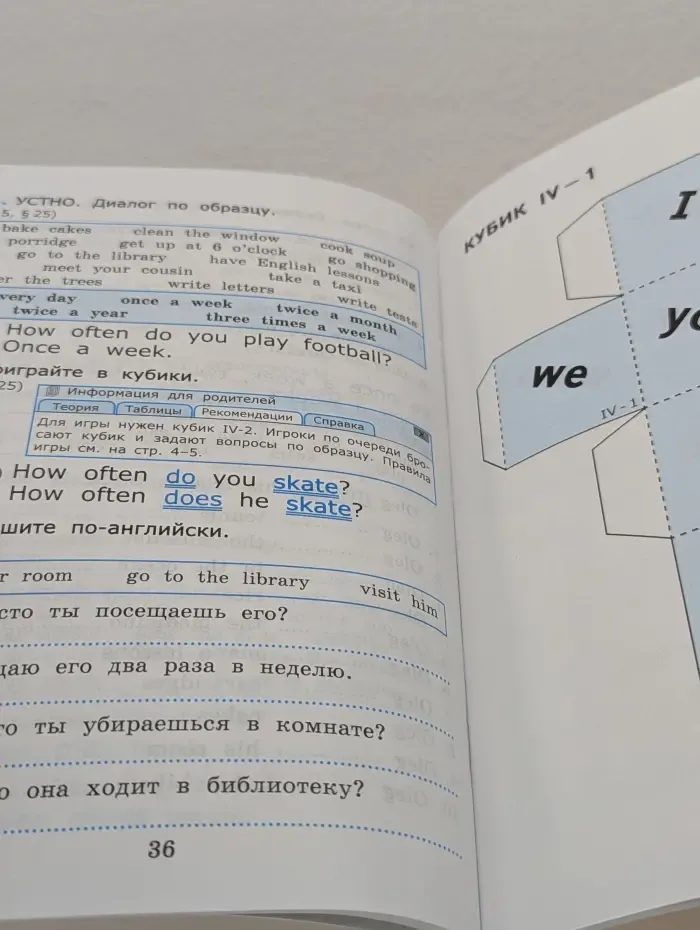 . УСТНО. Диалог по образцу.
5. § 25)
bake cakes clean the window cook soup
porridge get up at 6 o'clock go shopping
go to the library have English lessons
meet your cousin take a taxi
er the trees write letters write tests
very day once a week twice a month
twice a year three times a week
How often do you play football?
Once a week.
играйте в кубики.
25)
Информация для родителей
Теория Таблицы Рекомендации Справка
Для игры нужен кубик IV-2. Игроки по очереди бро-
сают кубик и задают вопросы по образцу. Правила
игры см. на стр. 4–5.
) How often do you skate?
How often does he skate?
шите по-английски.
r room go to the library visit him
сто ты посещаешь его?
щаю его два раза в неделю.
то ты убираешься в комнате?
о она ходит в библиотеку?
36
КУБИК IV – 1
I
yo
we
IV-1